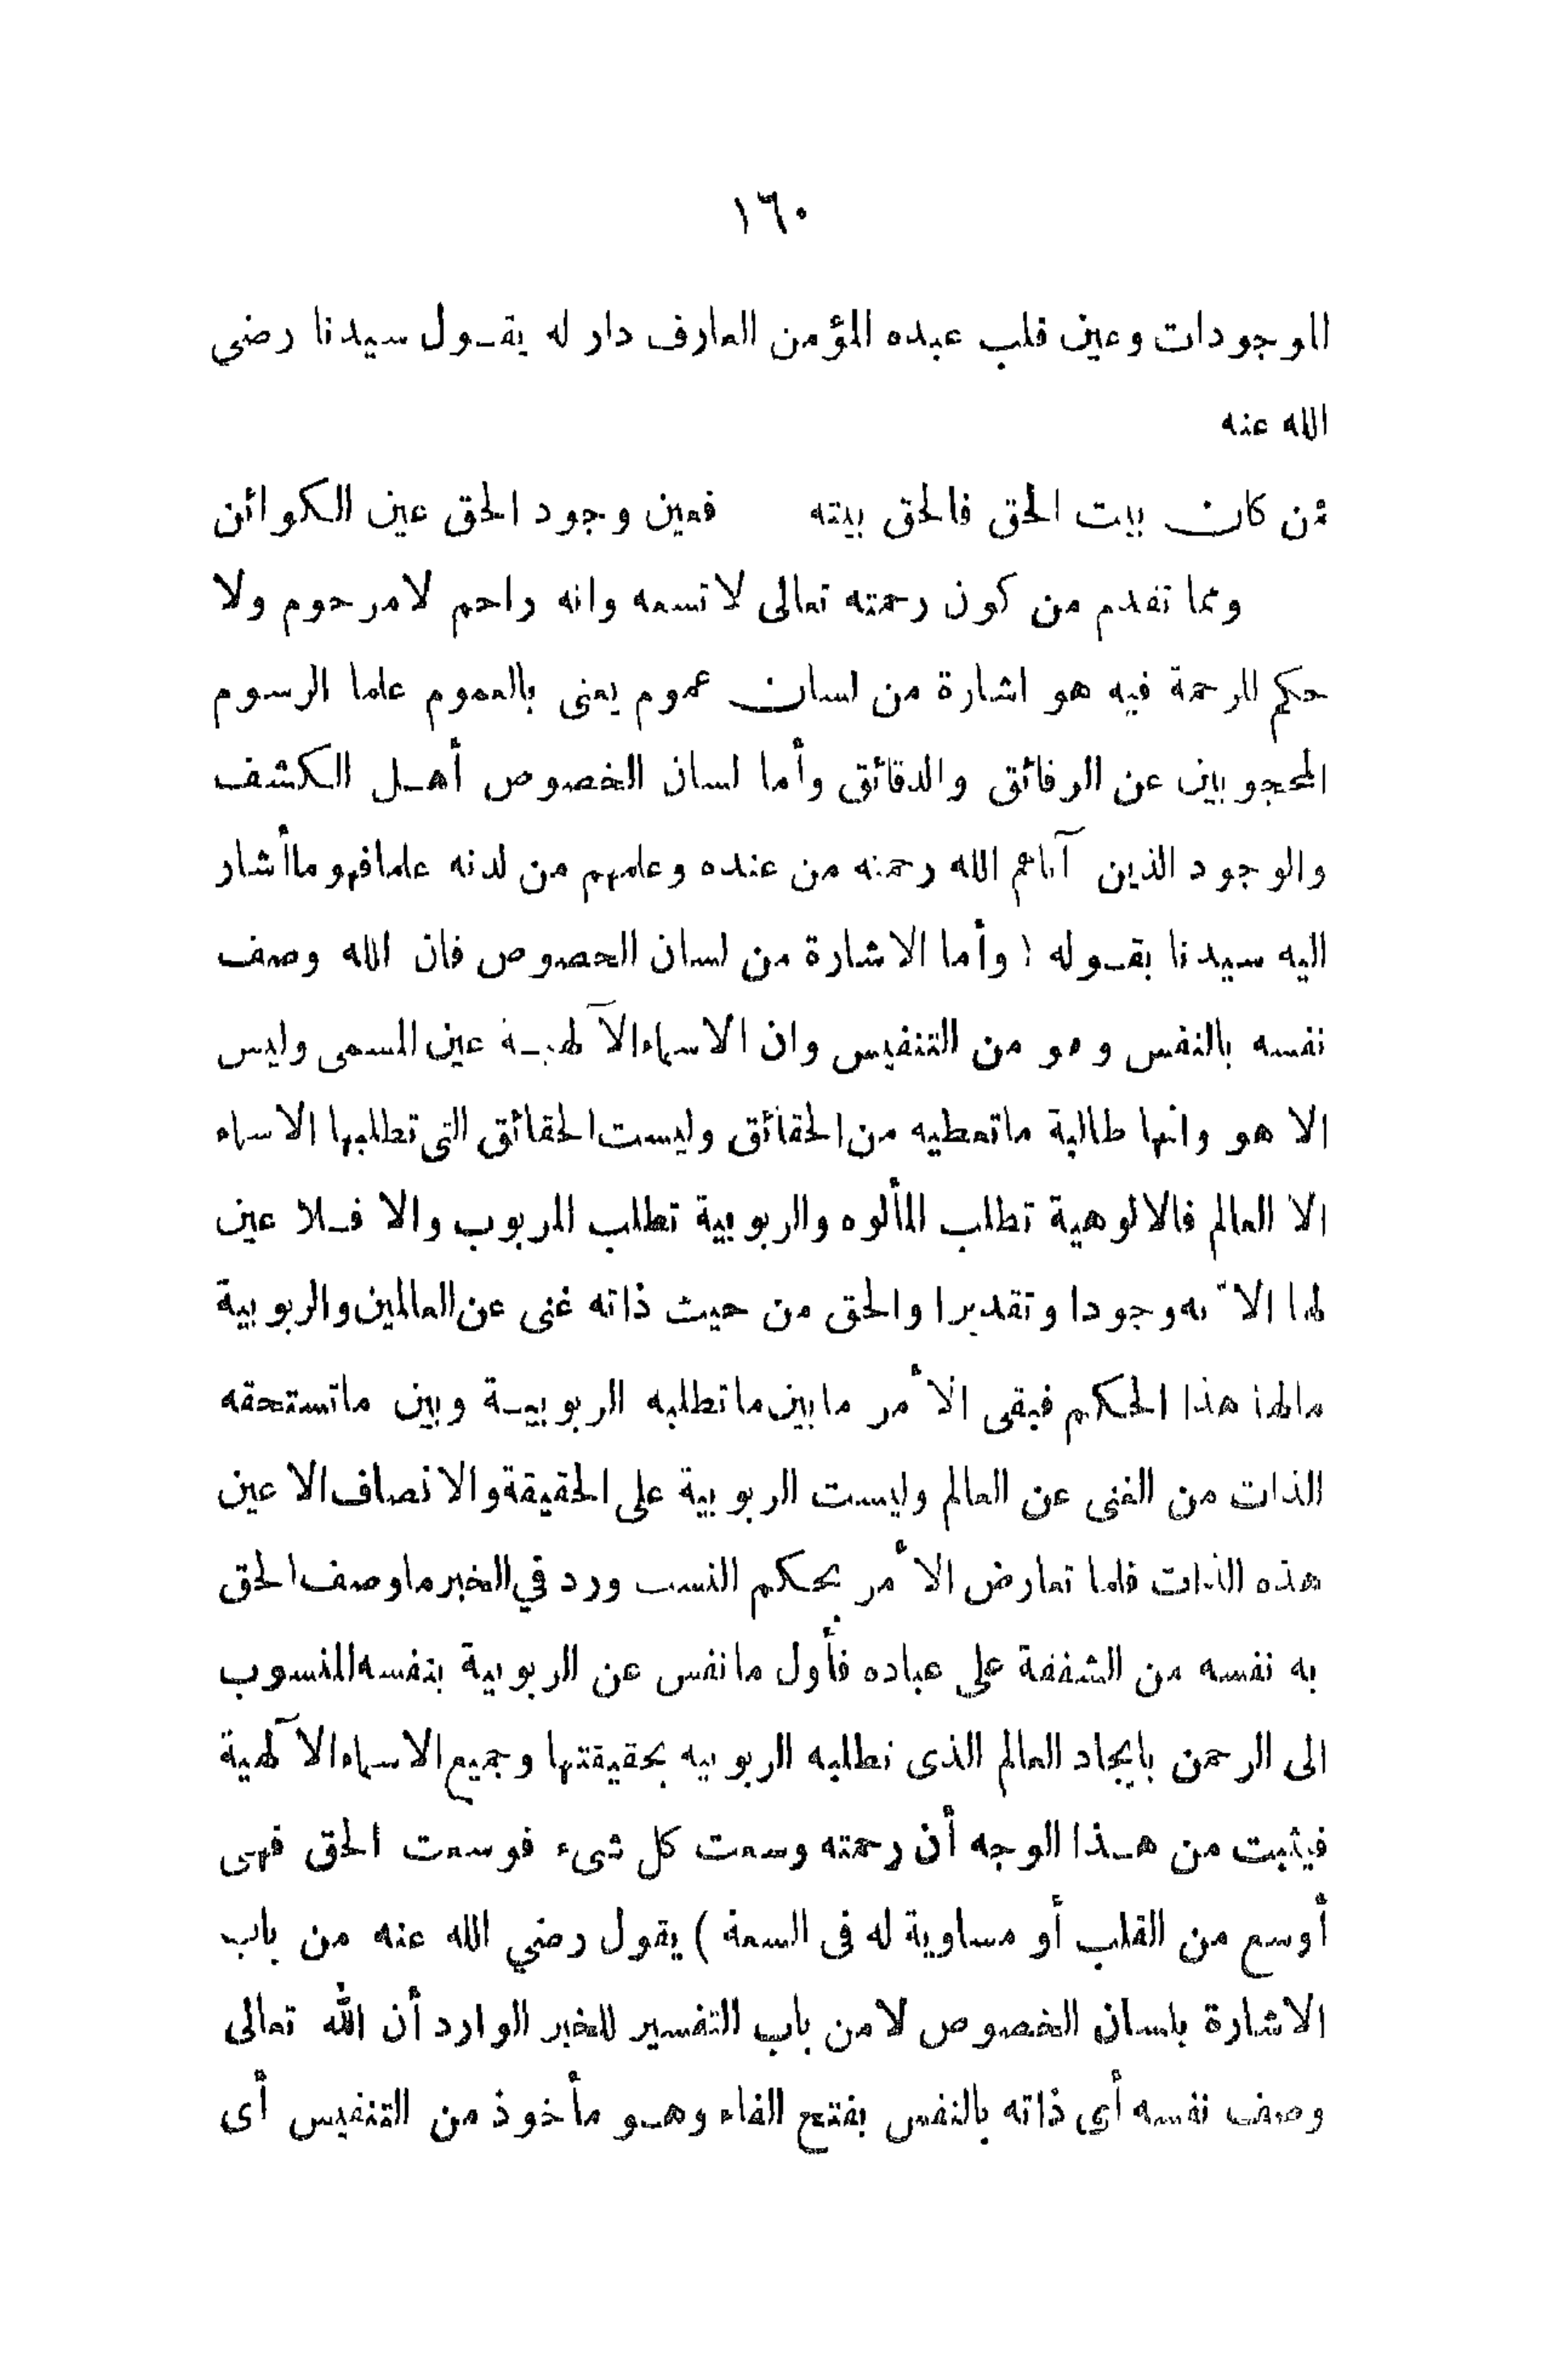 ١٦٠
الموجودات وعين قلب عبده المؤمن العارف دار له يقول سيدنا رضي
الله عنه
فمن كان بيت الحق فالحق بيته فعين وجود الحق عين الكوائن
ومما تقدم من كون رحمته تعالى لا تسعه وانه راحم لا مرحوم ولا
حكم للرحمة فيه هو اشارة من لسان عموم يعنى بالعموم علما الرسوم
المحجوبين عن الرقائق والدقائق وأما لسان الخصوص أهل الكشف
والوجود الذين آتاهم الله رحمته من عنده وعلمهم من لدنه علما فهو ما أشار
اليه سيدنا بقوله ( وأما الاشارة من لسان الخصوص فان الله وصف
نفسه بالنفس وهو من التنفيس وان الاسماء الآلهية عين المسمى وليس
الا هو وانها طالبة ما تعطيه من الحقائق وليست الحقائق التى تطلبها الاسماء
الا العالم فالالوهية تطلب المألوه والربوبية تطلب المربوب والا فلا عين
لها الا به وجودا وتقديرا والحق من حيث ذاته غنى عن العالمين والربوبية
مالها هذا الحكم فبقى الأمر ما بين ما تطلبه الربوبية وبين ما تستحقه
الذات من الغنى عن العالم وليست الربوبية على الحقيقة والاتصاف الا عين
هذه الذات فلما تعارض الأمر بحكم النسب ورد في الخبر ما وصف الحق
به نفسه من الشفقة على عباده فأول ما نفس عن الربوبية بنفسه المنسوب
الى الرحمن بايجاد العالم الذى تطلبه الربوبيه بحقيقتها وجميع الاسماء الآلهية
فيثبت من هذا الوجه أن رحمته وسعت كل شىء فوسعت الحق فهى
أوسع من القلب أو مساوية له فى السعة ) يقول رضي الله عنه من باب
الاشارة بلسان الخصوص لا من باب التفسير للخبر الوارد أن الله تعالى
وصف نفسه أى ذاته بالنفس بفتح الفاء وهو مأخوذ من التنفيس أى